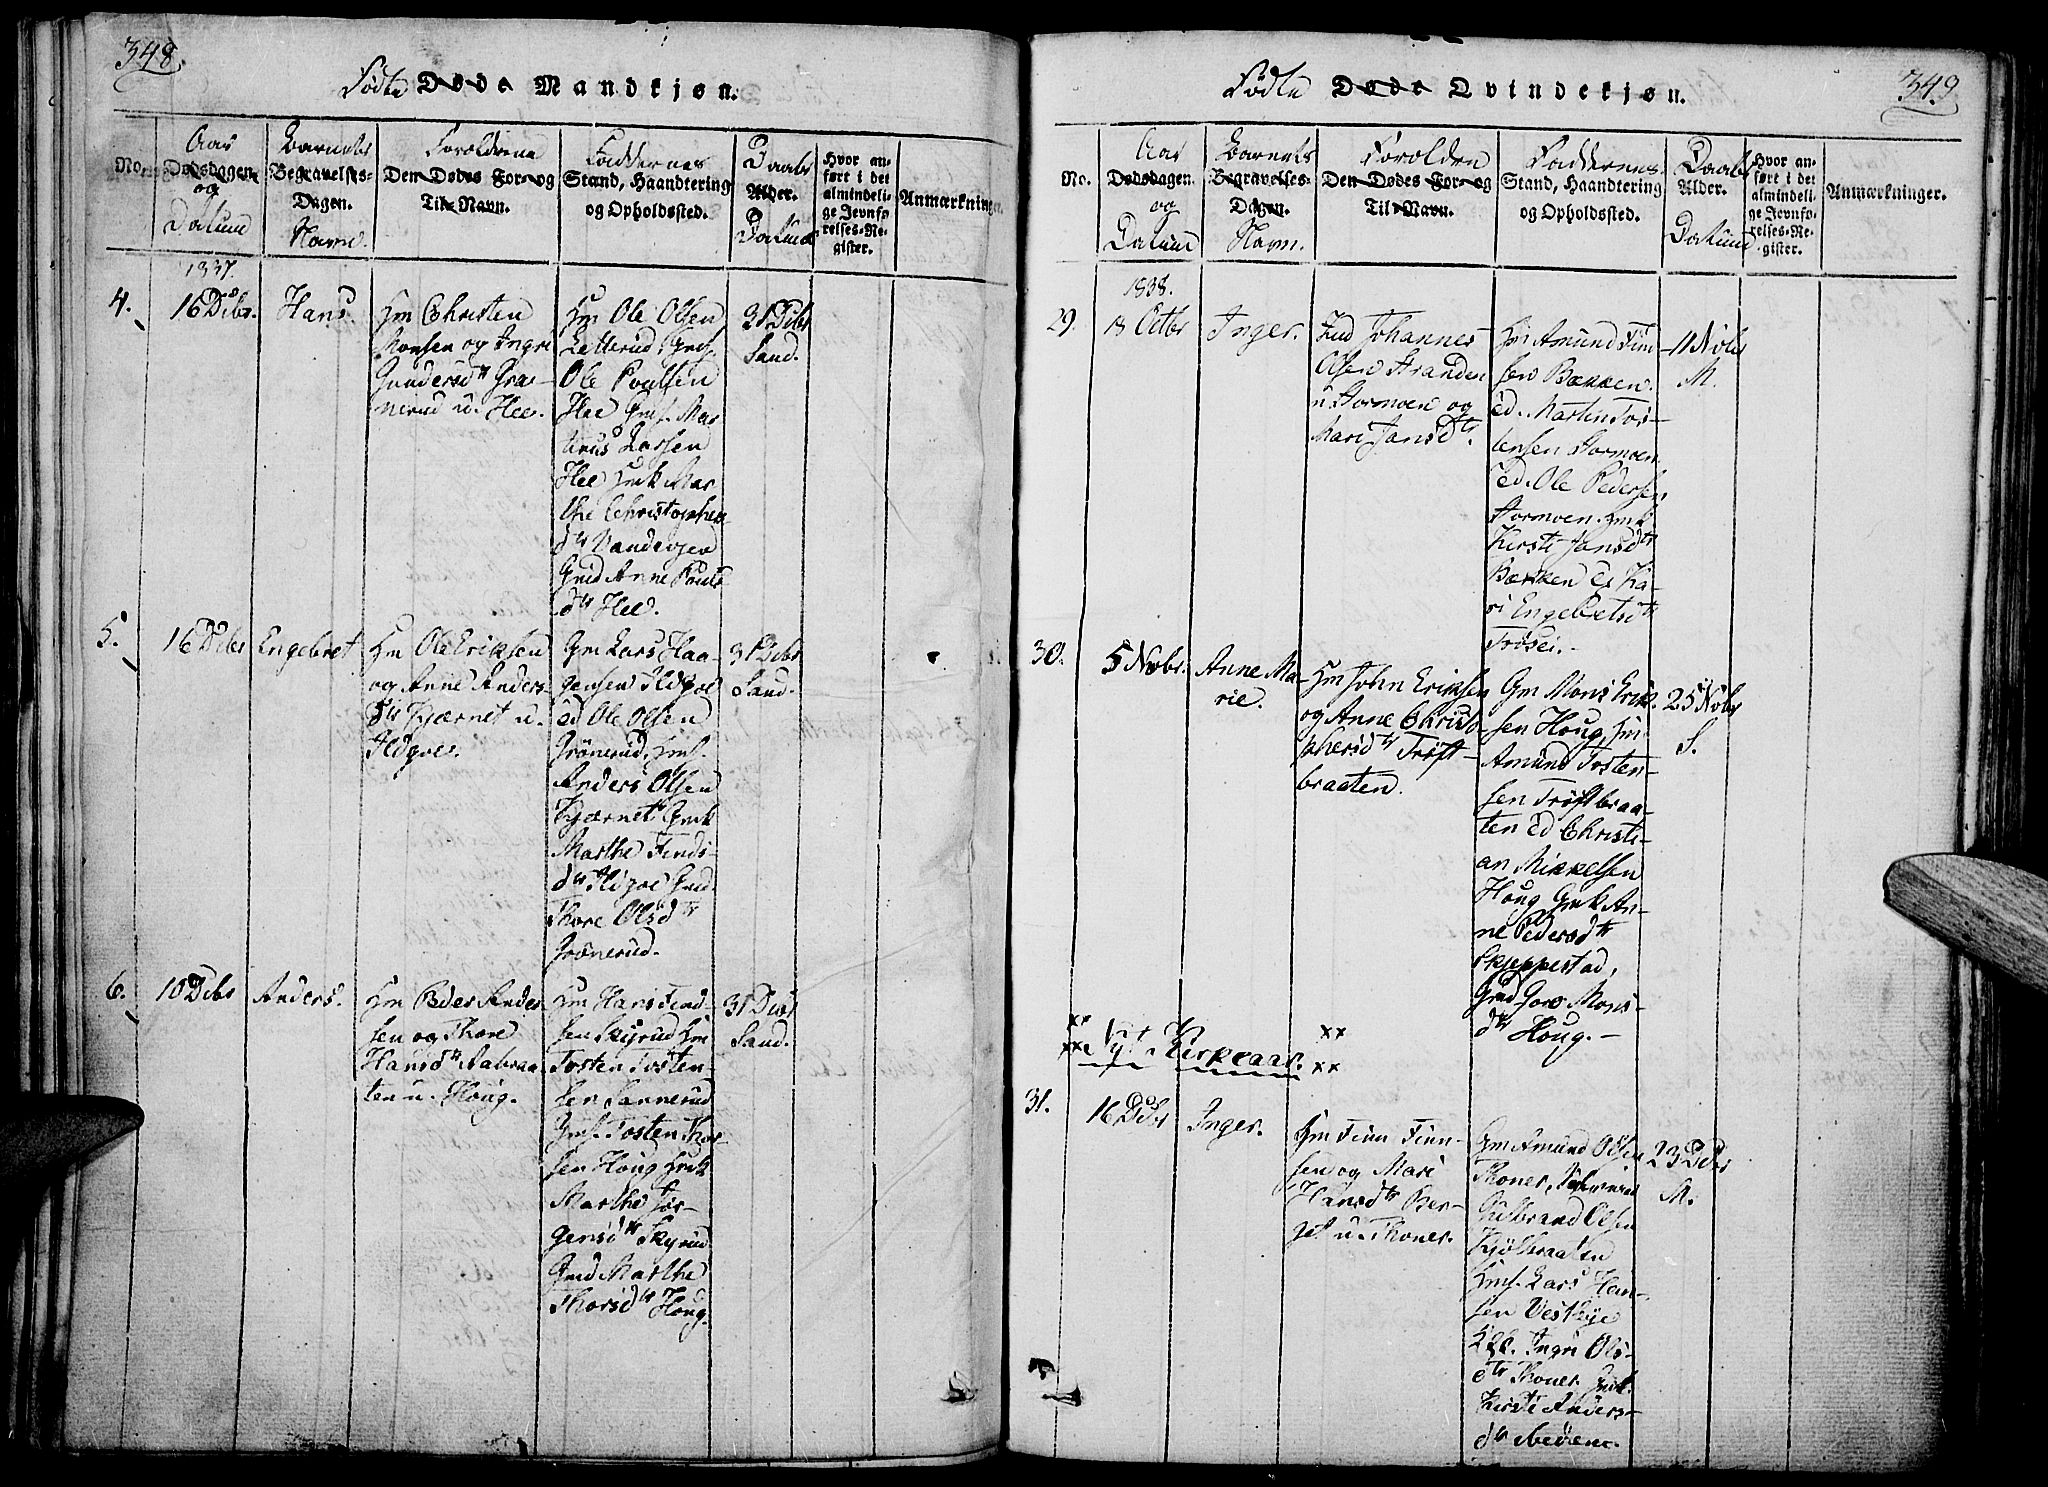 348.
Fødte Døde Mandkjøn.
No.
Aar
Dødsdagen
og
Datum
Barnets
Begravelses-
Dagen.
Navn.
Forældrene
Den Dødes For- og
Til-Navn.
Faddernes
Stand, Haandtering
og Opholdssted.
Daabs
Alder.
Datum
Hvor an-
ført i det
almindeli-
ge Jevnfø-
relses-Re-
gister.
Anmærkninger.
1837.
4.
16 Dcbr.
Hans
Gm Christen
Monsen og Ingri
Gundersdtr Grø-
nerud u. Hee.
Gm Ole Olsen
Letterud, Gmf.
Ole Poulsen
Hee Gmf. Mar
tinus Larsen
Hee Gmk Mar
the Christophers
dtr
Gmd Anne Pouls
dtr Hee.
31 Dcbr
Sand.
5.
16 Dcbr
Engebret
Gm Ole Eriksen
og Anne Anders-
dtr Kjærnet u.
Gm Lars Haa-
gensen
ed Ole Olsen
Grönerud, Gmf.
Anders Olsen
Kjærnet, Gmk
Marthe Finds-
dtr Gmd.
Thore Olsdtr
Grönerud.
31 Dcbr
Sand.
6.
10 Dcbr
Anders.
Gm Peder Ander
sen og Thore
Hansdtr Aabraa-
ten u. Houg.
Gm Hans Find-
sen Skyrud Gm
Tosten Tosten-
sen Sannerud
Gmf. Tosten Thor
sen Houg Gmk
Marthe Jør-
gensdtr Skyrud
Gmd Marthe
Thorsdtr Houg.
31 Dcbr
Sand.
349
Fødte Døde Qvindekjøn.
No.
Aar
Dødsdagen.
og
Datum
Barnets
Begravelses-
Dagen.
Navn.
Forælden
Den Dødes For- og
Til-Navn.
Faddernes
Stand, Haandtering
og Opholdssted.
Daabs
Alder.
Datum
Hvor an-
ført i det
almindeli-
ge Jevnfø-
relses-Re-
gister.
Anmærkninger.
1838.
29.
13 Octbr
Inger.
Ind Johannes
Olsen Stranden
u Stormoen og
Mari Jansdtr.
Gm Amund Fin
sen Bækken.
ed. Martin Tos-
tensen Stormoen
ed. Ole Pedersen
Stormoen. Gmk
Kirsti Jonsdtr
Bækken ed Ka-
ri Engebretsdtr
Trösei.
11 Nobr
M.
30.
5 Nobr.
Anne Ma-
rie.
Gm John Eriksen
og Anne Christo-
phersdtr Tröft-
braaten.
Gm Mons Erik-
sen Houg, Gm
Amund Tosten-
sen Tröftbraa-
ten ed Christi-
an Mikkelsen
Houg Gmk An-
ne Pedersdtr
Skjeppestad,
Gmd Goro Mons-
dtr Houg.
25 Nobr
S.
xx
xx
xx
xx
Nyt Kirkeaar.
31.
16 Dcbr
Inger.
Gm Finn Finn-
sen og Mari
Hansdtr Ber-
get u. Thoner.
Gm Amund Olsen
Thoner,
Gulbrand Olsen
Kjölbraaten
Gmf. Lars Han-
sen Vestbye
Ingri Ols-
dtr Thoner. Gmk.
Kirsti Anders-
dtr
23 Dcbr
M.